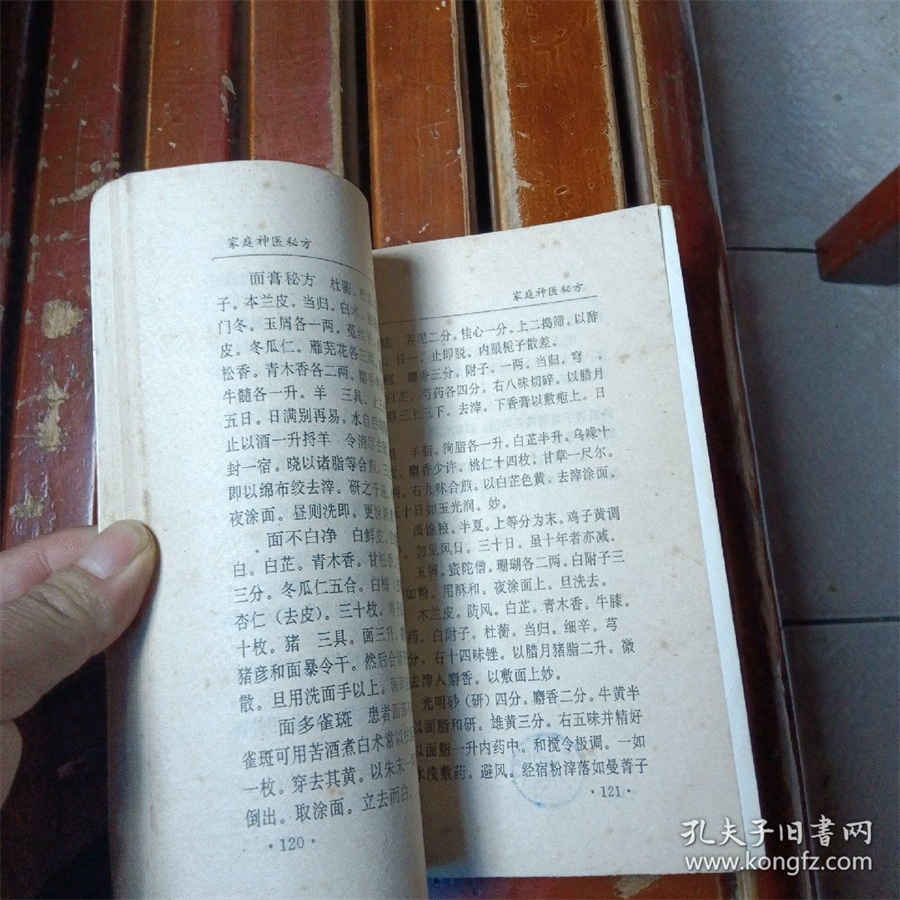 家庭神医秘方
面膏秘方 杜衡。
子。本兰皮。当归。白术。
门冬。玉屑各一两。菟
皮。冬瓜仁。蘼芜花各三
松香。青木香各二两。
牛髓各一升。羊 三具。
五日。日满别再易。水
止以酒一升捋羊 令
封一宿。晓以诸脂等合煎。三
即以绵布绞去滓。研之千
夜涂面。昼则洗即。更
面不白净 白鲜皮。
白。白芷。青木香。甘
三分。冬瓜仁五合。白
杏仁(去皮)。三十枚。
十枚。猪 三具。面三升。
猪彦和面暴令干。然后合
散。旦用洗面手以上。
面多雀斑 患者面
雀斑可用苦酒煮白术常以
一枚。穿去其黄。以朱末一
倒出。取涂面。立去而白。
·120·
家庭神医秘方
二分。桂心一分。上二捣筛。以酢
日一。止即脱。内服栀子散差。
香三分。附子。一两。当归。芎
芍药各四分。右八味切碎。以腊月
三上三下。去滓。下香膏以敷疱上。日
手脂。狗脂各一升。白芷半升。乌喙十
麝香少许。桃仁十四枚。甘草一尺尔。
右九味合煎。以白芷色黄。去滓涂面。
十日如玉光润。妙。
粮。半夏。上等分为末。鸡子黄调
忽见风日。三十日。虽十年者亦减。
玉屑。蜜陀僧。珊瑚各二两。白附子三
如粉。用酥和。夜涂面上。旦洗去。
木兰皮。防风。白芷。青木香。牛膝。
药。白附子。杜蘅。当归。细辛。芎
分。右十四味锉。以腊月猪脂二升。微
去滓人麝香。以敷面上妙。
光明砂(研)四分。麝香二分。牛黄半
以面脂和研。雄黄三分。右五味并精好
以面脂一升内药中。和搅令极调。一如
水浅敷药。避风。经宿粉滓落如曼菁子
·121·
孔夫子旧書网
www.kongfz.com